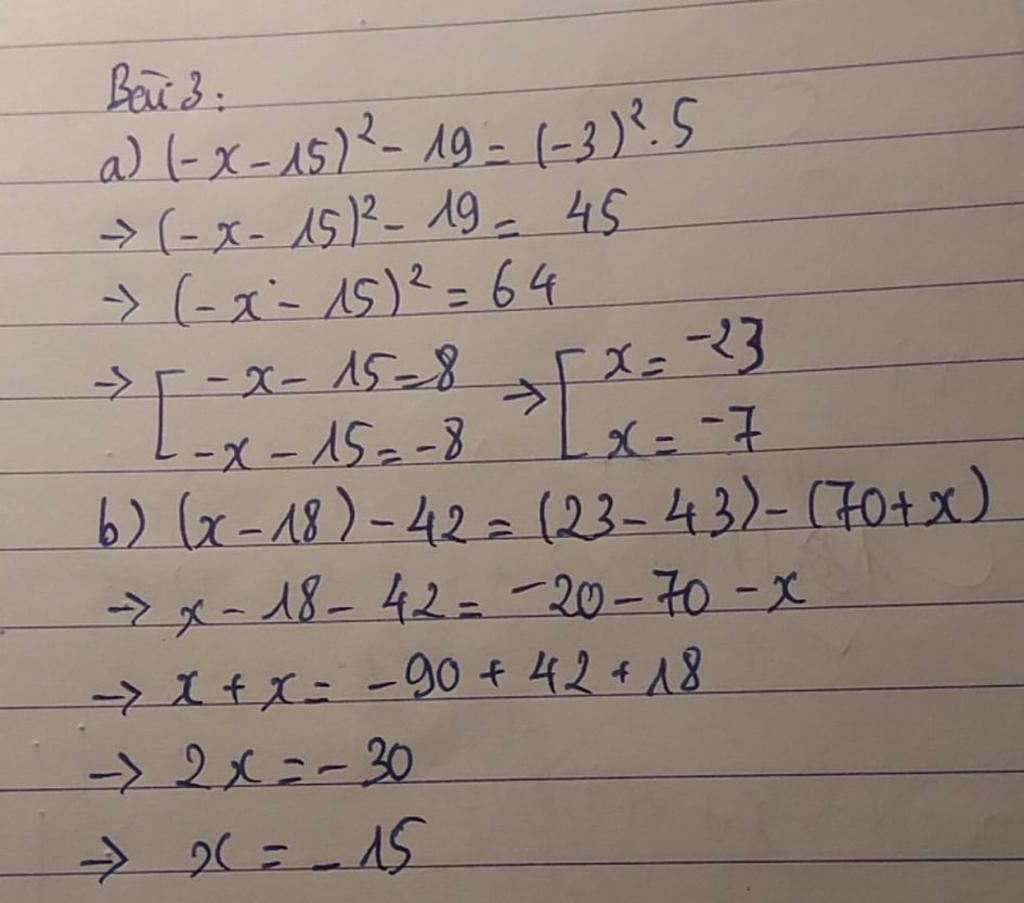 Bài 3:
a) (-x-15)² - 19 = (-3)².5
→ (-x-15)² - 19 = 45
→ (-x-15)² = 64
→ [ -x-15=8 → [ x=-23
-x-15=-8 x=-7
b) (x-18)-42=(23-43)-(70+x)
→ x-18-42=-20-70-x
→ x+x=-90+42+18
→ 2x=-30
→ x=-15